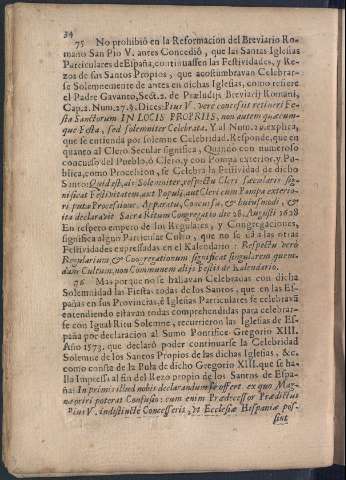 34
75 No prohibió en la Reformacion del Breviario Ro-
mano San Pio V. antes Concedió, que las Santas Iglesias
Particulares de España, continuassen las Festividades, y Re-
zos de sus Santos Propios, que acostumbravan Celebrar-
se Solemnemente de antes en dichas Iglesias, como refiere
el Padre Gavanto, Sect. 2. de Præludijs Breviarij Romani,
Cap. 2. Num. 27. §. Dices: Pius V. verè concessit retineri Fe-
sta Sanctorum IN LOCIS PROPRIIS, non autem quæcum-
que Festa, sed solemniter Celebrata. Y al Num. 29. explica,
que se entienda por solemne Celebridad. Respondo, que en
quanto al Clero Secular significa, Quando con numeroso
concurso del Pueblo, ó Clero, y con Pompa exterior, y Pu-
blica, como Procession, se Celebra la Festividad de dicho
Santo; Quid est, ait: Solemniter, respectu Cleri sæcularis sig-
nificat Festivitatem, aut Populi, aut Cleri cum Pampa exterio-
ri, puta Processione, Apparatu, Concursu, & huiusmodi, &
ita declaravit Sacra Rituum Congregatio die 28. Augusti 1628
En respeto empero de los Regulares, y Congregaciones,
significa algun Particular Culto, que no se dà à las otras
Festividades expressadas en el Kalendario: Respectu verò
Regularium & Congregationum significat singularem quem-
dam Cultum, non Communem alijs Festis de Kalendario.
76 Mas porque no se hallavan Celebradas con dicha
Solemnidad las Fiestas todas de los Santos, que en las Es-
pañas en sus Provincias, é Iglesias Particulares se celebravã
entendiendo estavan todas comprehendidas para celebrar-
se con Igual Ritu Solemne, recurrieron las Iglesias de Es-
paña por declaracion al Sumo Pontifice Gregorio XIII.
Año 1573. que declaró poder continuarse la Celebridad
Solemne de los Santos Propios de las dichas Iglesias, &c.
como conste de la Bula de dicho Gregorio XIII. que se ha-
lla Impressa al fin del Rezo propio de los Santos de Espa-
ña: In primis illud nobis declarandum se offert, ex quo Mag-
na oriri poterat Confusio: cum enim Prædecessor Prædictus
Pius V. indistincte Concesserit, ut Ecclesiæ Hispaniæ pos-
sint